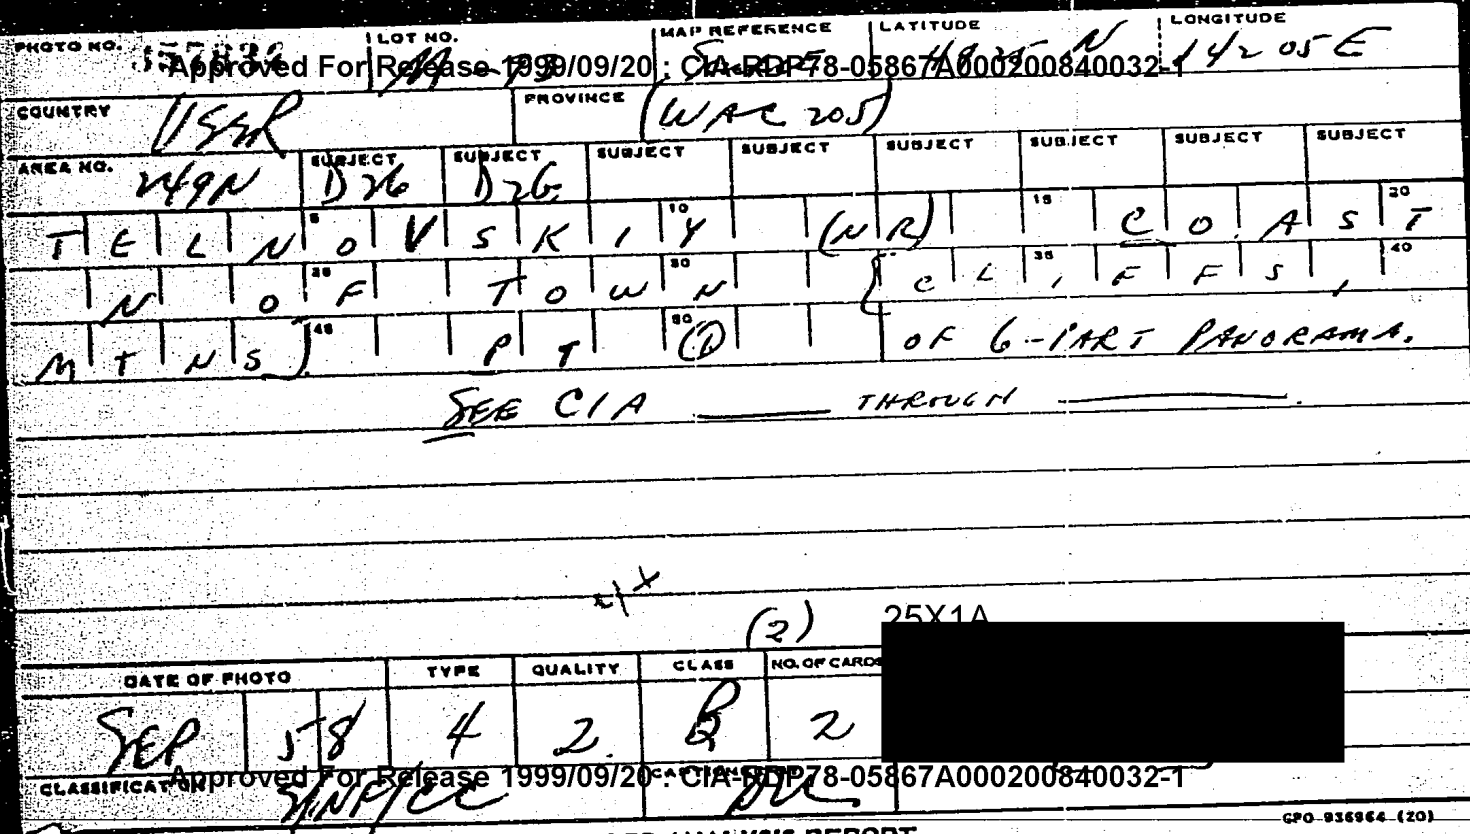 PHOTO NO. LOT NO. MAP REFERENCE LATITUDE LONGITUDE
Approved For Release 1999/09/20 : CIA-RDP78-05867A000200840032-1
N 142 05 E
COUNTRY USSR PROVINCE (WAC 205)
AREA NO. 249N SUBJECT D26 SUBJECT D26 SUBJECT SUBJECT SUBJECT SUBJECT SUBJECT SUBJECT
5 10 15 20
TELNOVSKIY (NR) COAST
25 30 35 40
N OF TOWN (CLIFFS,
45 50
MTNS) PT (1) OF 6-PART PANORAMA.
SEE CIA ______ THROUGH ______.
(2) 25X1A
DATE OF PHOTO TYPE QUALITY CLASS NO. OF CARDS
SEP 58 4 2 B 2
CLASSIFICATION
Approved For Release 1999/09/20 : CIA-RDP78-05867A000200840032-1
GPO 936964 (20)